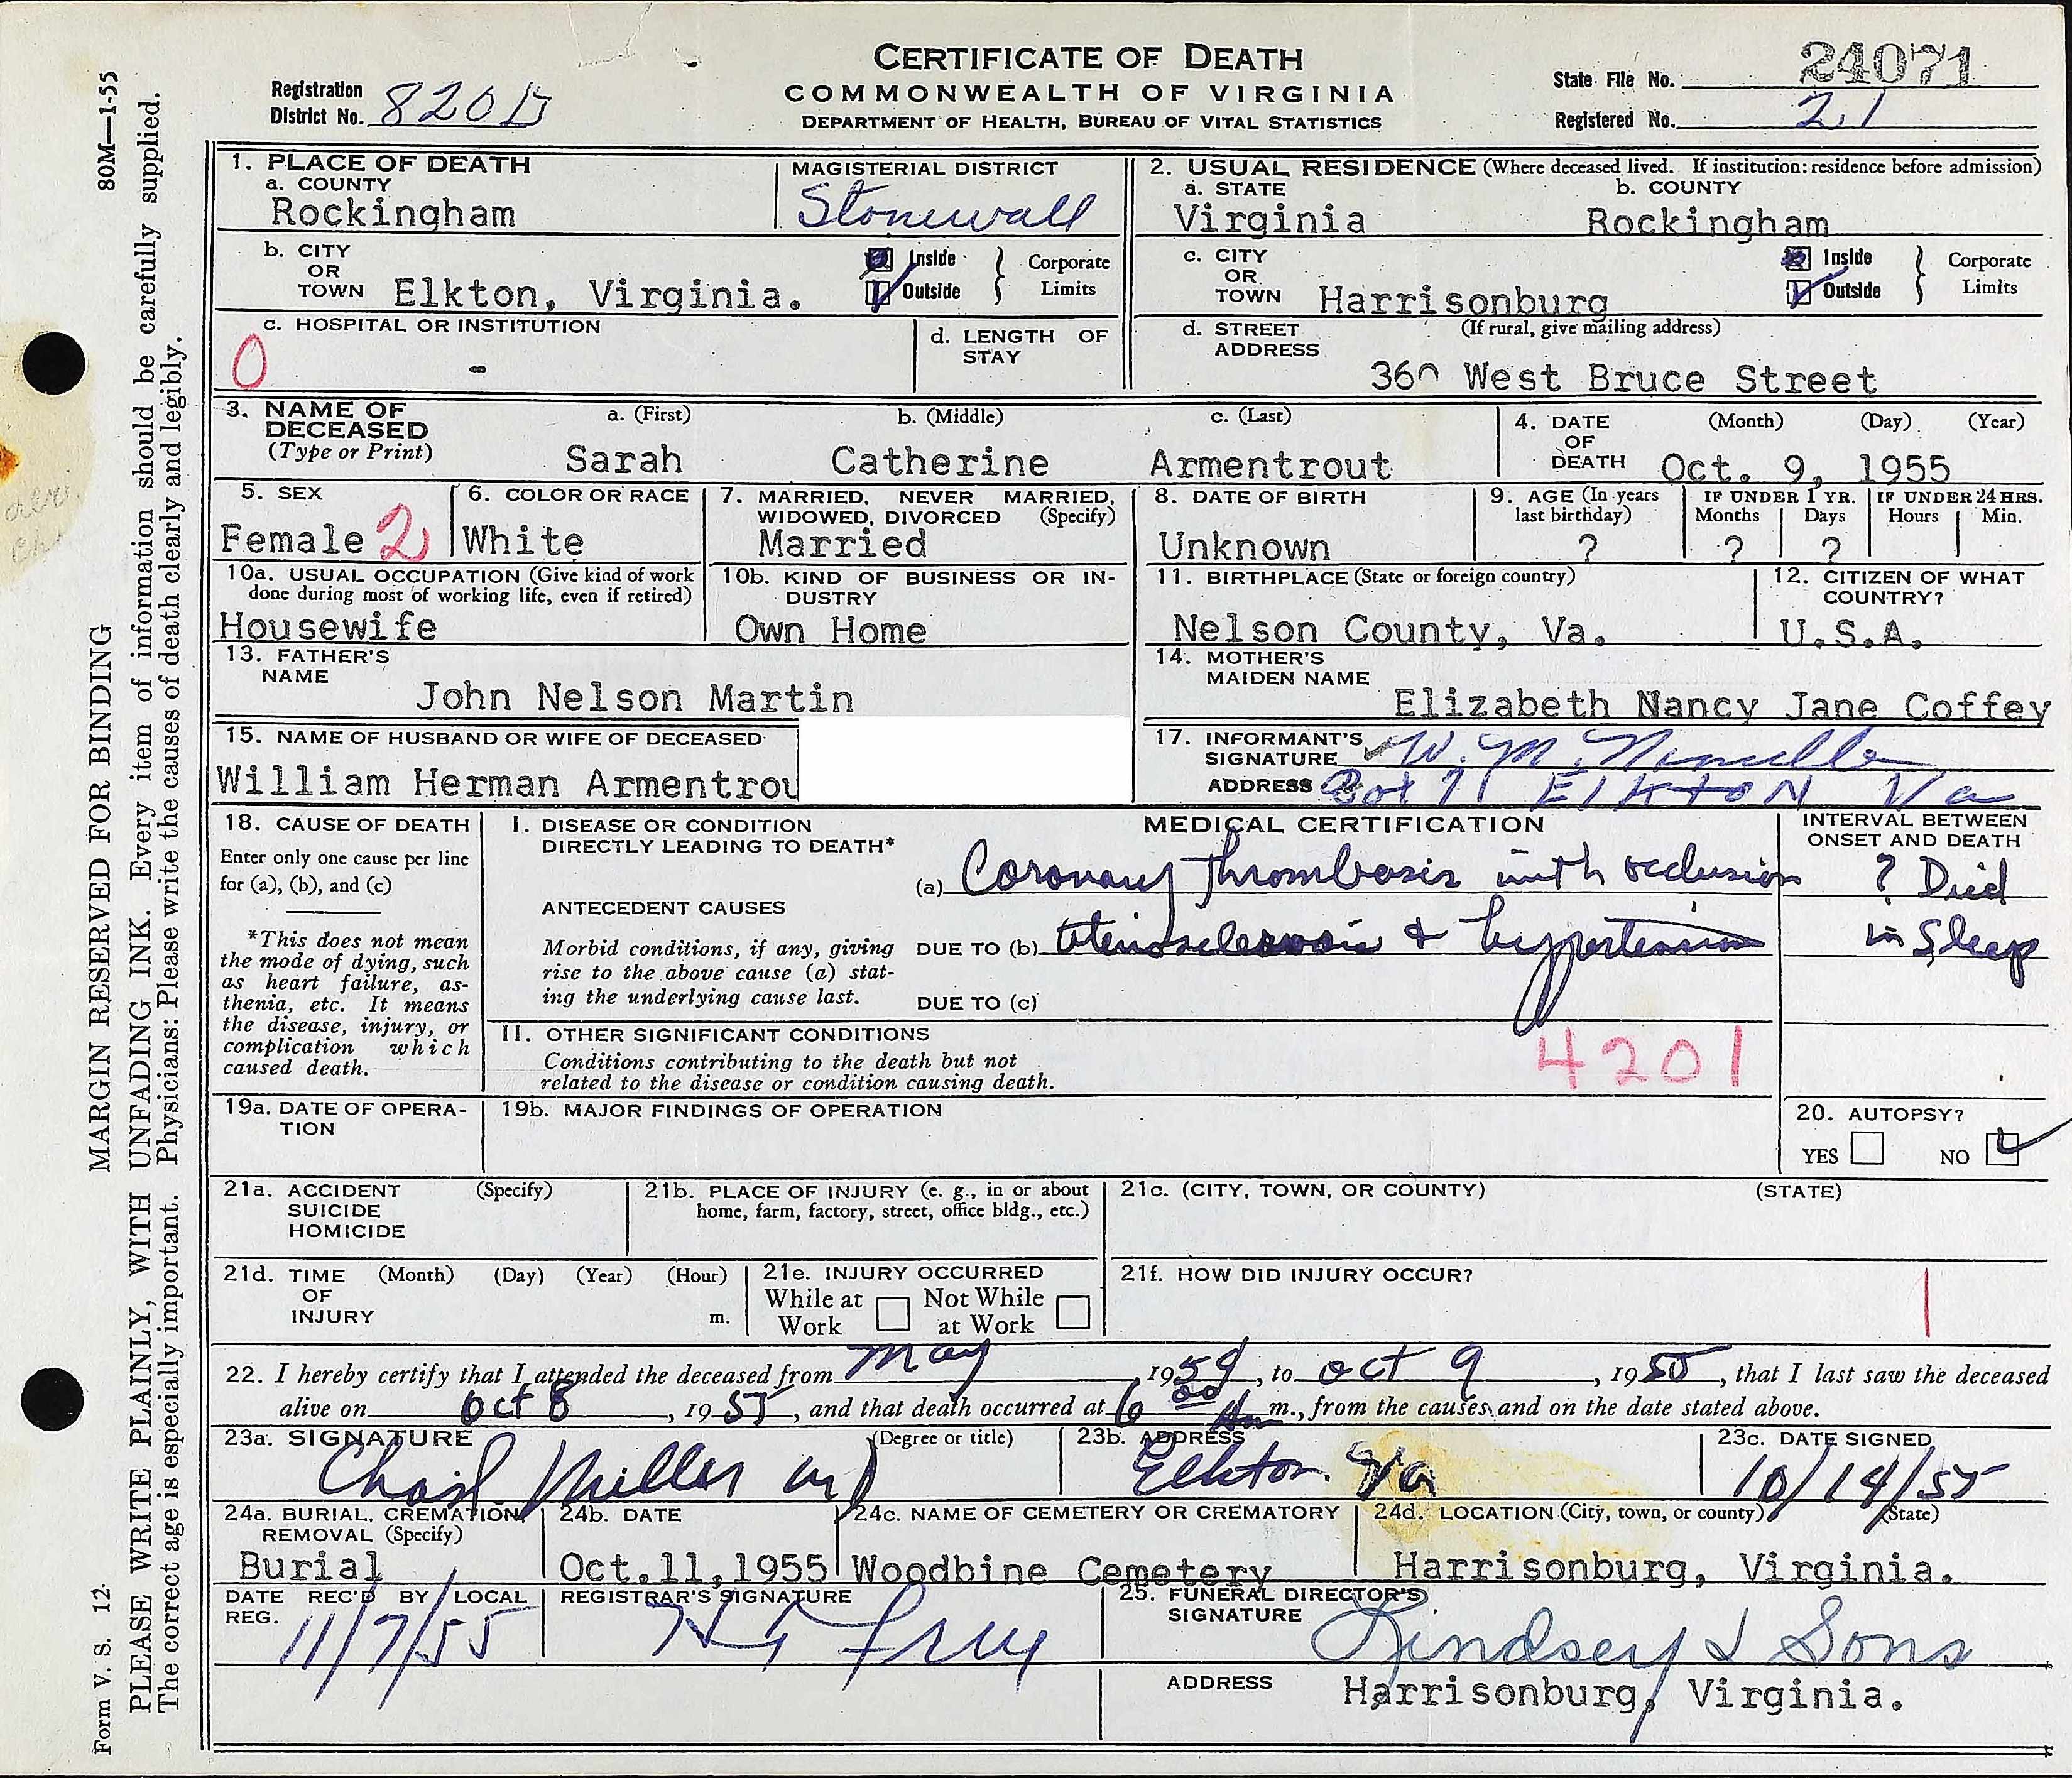 CERTIFICATE OF DEATH
COMMONWEALTH OF VIRGINIA
DEPARTMENT OF HEALTH, BUREAU OF VITAL STATISTICS
Registration
District No. 820D
State File No. 24071
Registered No. 21
80M—1-55
MARGIN RESERVED FOR BINDING
PLEASE WRITE PLAINLY, WITH UNFADING INK. Every item of information should be carefully supplied.
The correct age is especially important. Physicians: Please write the causes of death clearly and legibly.
Form V. S. 12
1. PLACE OF DEATH
a. COUNTY
Rockingham
MAGISTERIAL DISTRICT
Stonewall
2. USUAL RESIDENCE (Where deceased lived. If institution: residence before admission)
a. STATE
Virginia
b. COUNTY
Rockingham
b. CITY
OR
TOWN Elkton, Virginia.
Inside
Outside
Corporate
Limits
c. CITY
OR
TOWN Harrisonburg
Inside
Outside
Corporate
Limits
c. HOSPITAL OR INSTITUTION
0 -
d. LENGTH OF
STAY
d. STREET
ADDRESS
(If rural, give mailing address)
360 West Bruce Street
3. NAME OF
DECEASED
(Type or Print)
a. (First)
Sarah
b. (Middle)
Catherine
c. (Last)
Armentrout
4. DATE
OF
DEATH
(Month) (Day) (Year)
Oct. 9, 1955
5. SEX
Female 2
6. COLOR OR RACE
White
7. MARRIED, NEVER MARRIED,
WIDOWED, DIVORCED (Specify)
Married
8. DATE OF BIRTH
Unknown
9. AGE (In years
last birthday)
?
IF UNDER 1 YR.
Months Days
? ?
IF UNDER 24 HRS.
Hours Min.
10a. USUAL OCCUPATION (Give kind of work
done during most of working life, even if retired)
Housewife
10b. KIND OF BUSINESS OR IN-
DUSTRY
Own Home
11. BIRTHPLACE (State or foreign country)
Nelson County, Va.
12. CITIZEN OF WHAT
COUNTRY?
U.S.A.
13. FATHER'S
NAME
John Nelson Martin
14. MOTHER'S
MAIDEN NAME
Elizabeth Nancy Jane Coffey
15. NAME OF HUSBAND OR WIFE OF DECEASED
William Herman Armentrou
17. INFORMANT'S
SIGNATURE W. M.
ADDRESS Box 71 Elkton Va
18. CAUSE OF DEATH
Enter only one cause per line
for (a), (b), and (c)
*This does not mean
the mode of dying, such
as heart failure, as-
thenia, etc. It means
the disease, injury, or
complication which
caused death.
MEDICAL CERTIFICATION
I. DISEASE OR CONDITION
DIRECTLY LEADING TO DEATH*
(a) Coronary thrombosis with occlusion
ANTECEDENT CAUSES
Morbid conditions, if any, giving
rise to the above cause (a) stat-
ing the underlying cause last.
DUE TO (b) & hypertension
DUE TO (c)
INTERVAL BETWEEN
ONSET AND DEATH
? Died
in Sleep
II. OTHER SIGNIFICANT CONDITIONS
Conditions contributing to the death but not
related to the disease or condition causing death.
4201
19a. DATE OF OPERA-
TION
19b. MAJOR FINDINGS OF OPERATION
20. AUTOPSY?
YES NO
21a. ACCIDENT (Specify)
SUICIDE
HOMICIDE
21b. PLACE OF INJURY (e. g., in or about
home, farm, factory, street, office bldg., etc.)
21c. (CITY, TOWN, OR COUNTY) (STATE)
21d. TIME (Month) (Day) (Year) (Hour)
OF
INJURY m.
21e. INJURY OCCURRED
While at Not While
Work at Work
21f. HOW DID INJURY OCCUR?
1
22. I hereby certify that I attended the deceased from May, 1954, to Oct 9, 1955, that I last saw the deceased
alive on Oct 8, 1955, and that death occurred at 6 00 Am m., from the causes and on the date stated above.
23a. SIGNATURE (Degree or title)
Miller MD
23b. ADDRESS
Elkton Va
23c. DATE SIGNED
10/14/55
24a. BURIAL, CREMATION,
REMOVAL (Specify)
Burial
24b. DATE
Oct.11,1955
24c. NAME OF CEMETERY OR CREMATORY
Woodbine Cemetery
24d. LOCATION (City, town, or county) (State)
Harrisonburg, Virginia.
DATE REC'D BY LOCAL
REG.
11/7/55
REGISTRAR'S SIGNATURE
25. FUNERAL DIRECTOR'S
SIGNATURE
Lindsey & Sons
ADDRESS Harrisonburg, Virginia.